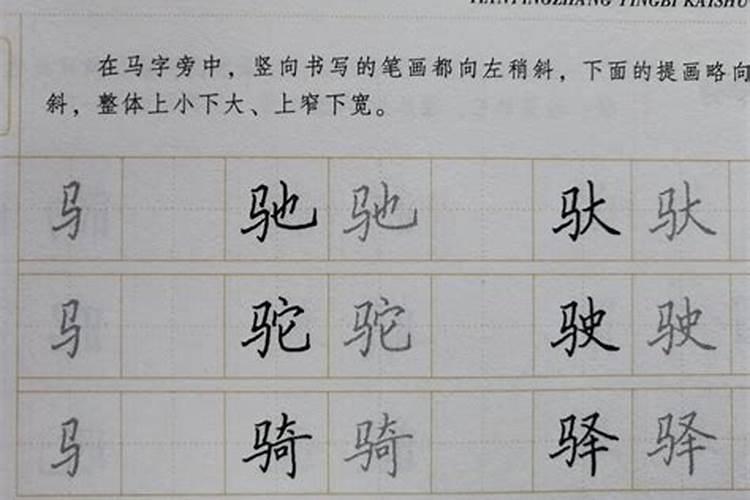 TIANYINGZHANG YINGBI KAISHU
在马字旁中，竖向书写的笔画都向左稍斜，下面的提画略向
斜，整体上小下大、上窄下宽。
马 驰 驰 驮 驮
马 驼 驼 驶 驶
马 骑 骑 驿 驿